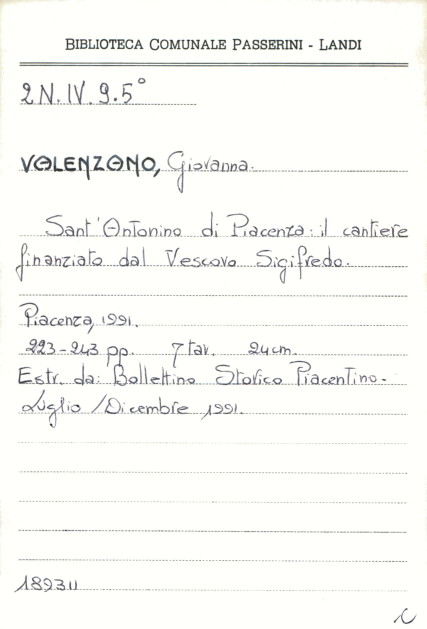 BIBLIOTECA COMUNALE PASSERINI - LANDI
2N.IV.9.5°
VALENZANO, Giovanna.
Sant'Antonino di Piacenza: il cantiere
finanziato dal Vescovo Sigifredo.
Piacenza, 1991.
223-243 pp. 7 tav. 24cm.
Estr. da: Bollettino Storico Piacentino-
Luglio/Dicembre 1991.
189311